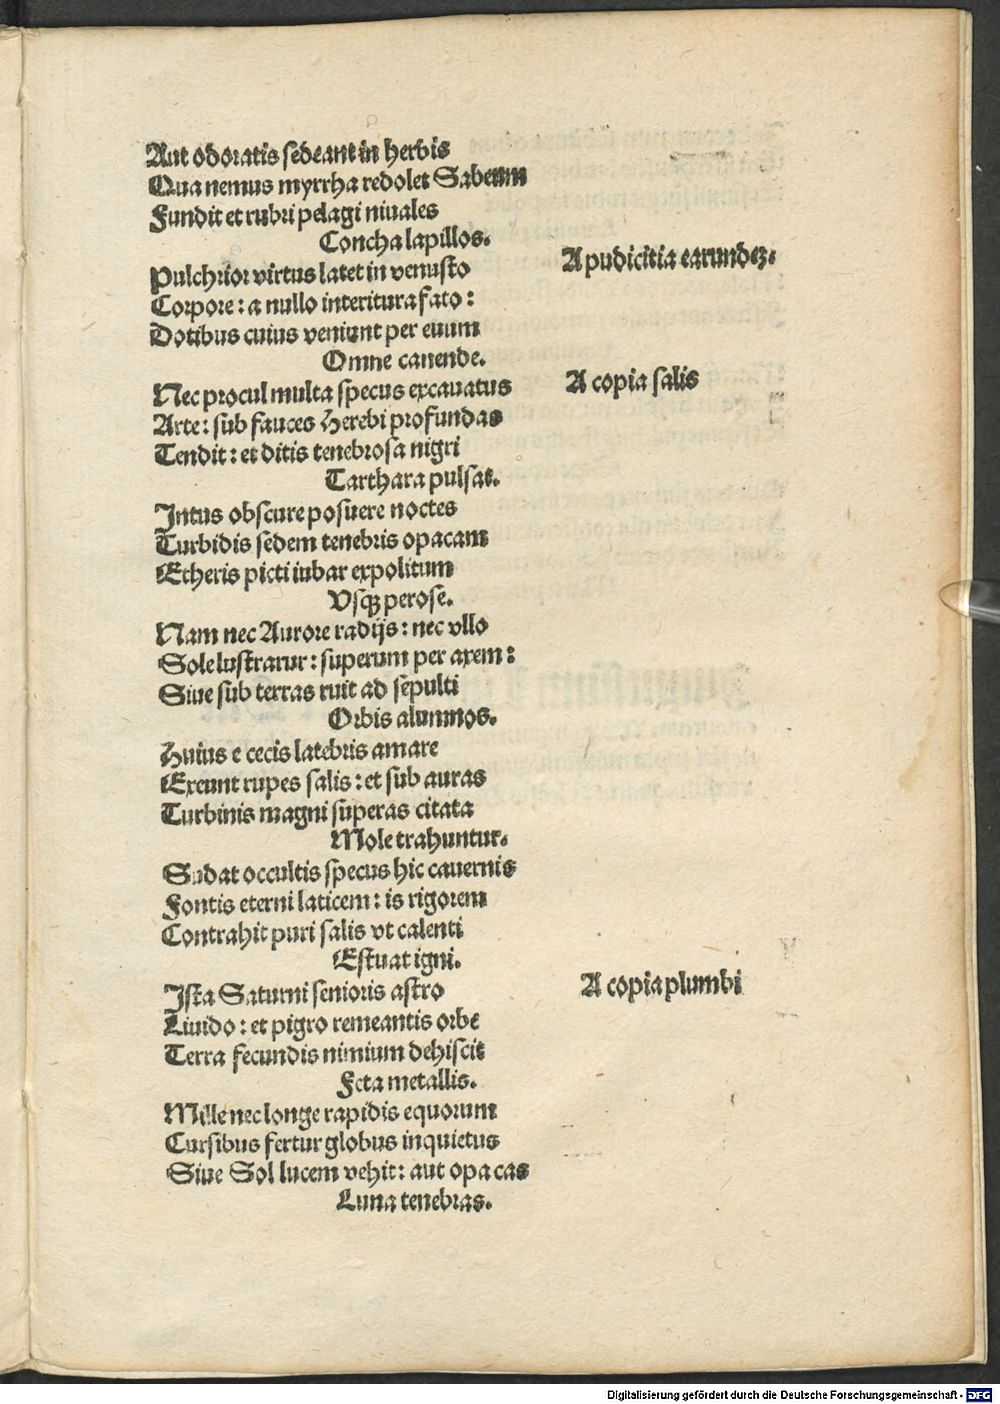 Aut odoratis sedeant in herbis
Qua nemus myrrha redolet Sabeum
Fundit et rubri pelagi niuales
Concha lapillos.
Pulchrior virtus latet in venusto
A pudicitia earundeꝫ.
Corpore: a nullo interitura fato:
Dotibus cuius veniunt per euum
Omne canende.
Nec procul multa specus excauatus
A copia salis
Arte: sub fauces Herebi profundas
Tendit: et ditis tenebrosa nigri
Tarthara pulsat.
Intus obscure posuere noctes
Turbidis sedem tenebris opacam
Etheris picti iubar expolitum
Vsqꝫ perose.
Nam nec Aurore radijs: nec vllo
Sole lustrarur: superum per axem:
Siue sub terras ruit ad sepulti
Orbis alumnos.
Huius e cecis latebris amare
Exeunt rupes salis: et sub auras
Turbinis magni superas citata
Mole trahuntur.
Sudat occultis specus hic cauernis
Fontis eterni laticem: is rigorem
Contrahit puri salis vt calenti
Estuat igni.
Ista Saturni senioris astro
A copia plumbi
Liuido: et pigro remeantis orbe
Terra fecundis nimium dehiscit
Feta metallis.
Mille nec longe rapidis equorum
Cursibus fertur globus inquietus
Siue Sol lucem vehit: aut opacas
Luna tenebras.
Digitalisierung gefördert durch die Deutsche Forschungsgemeinschaft - DFG